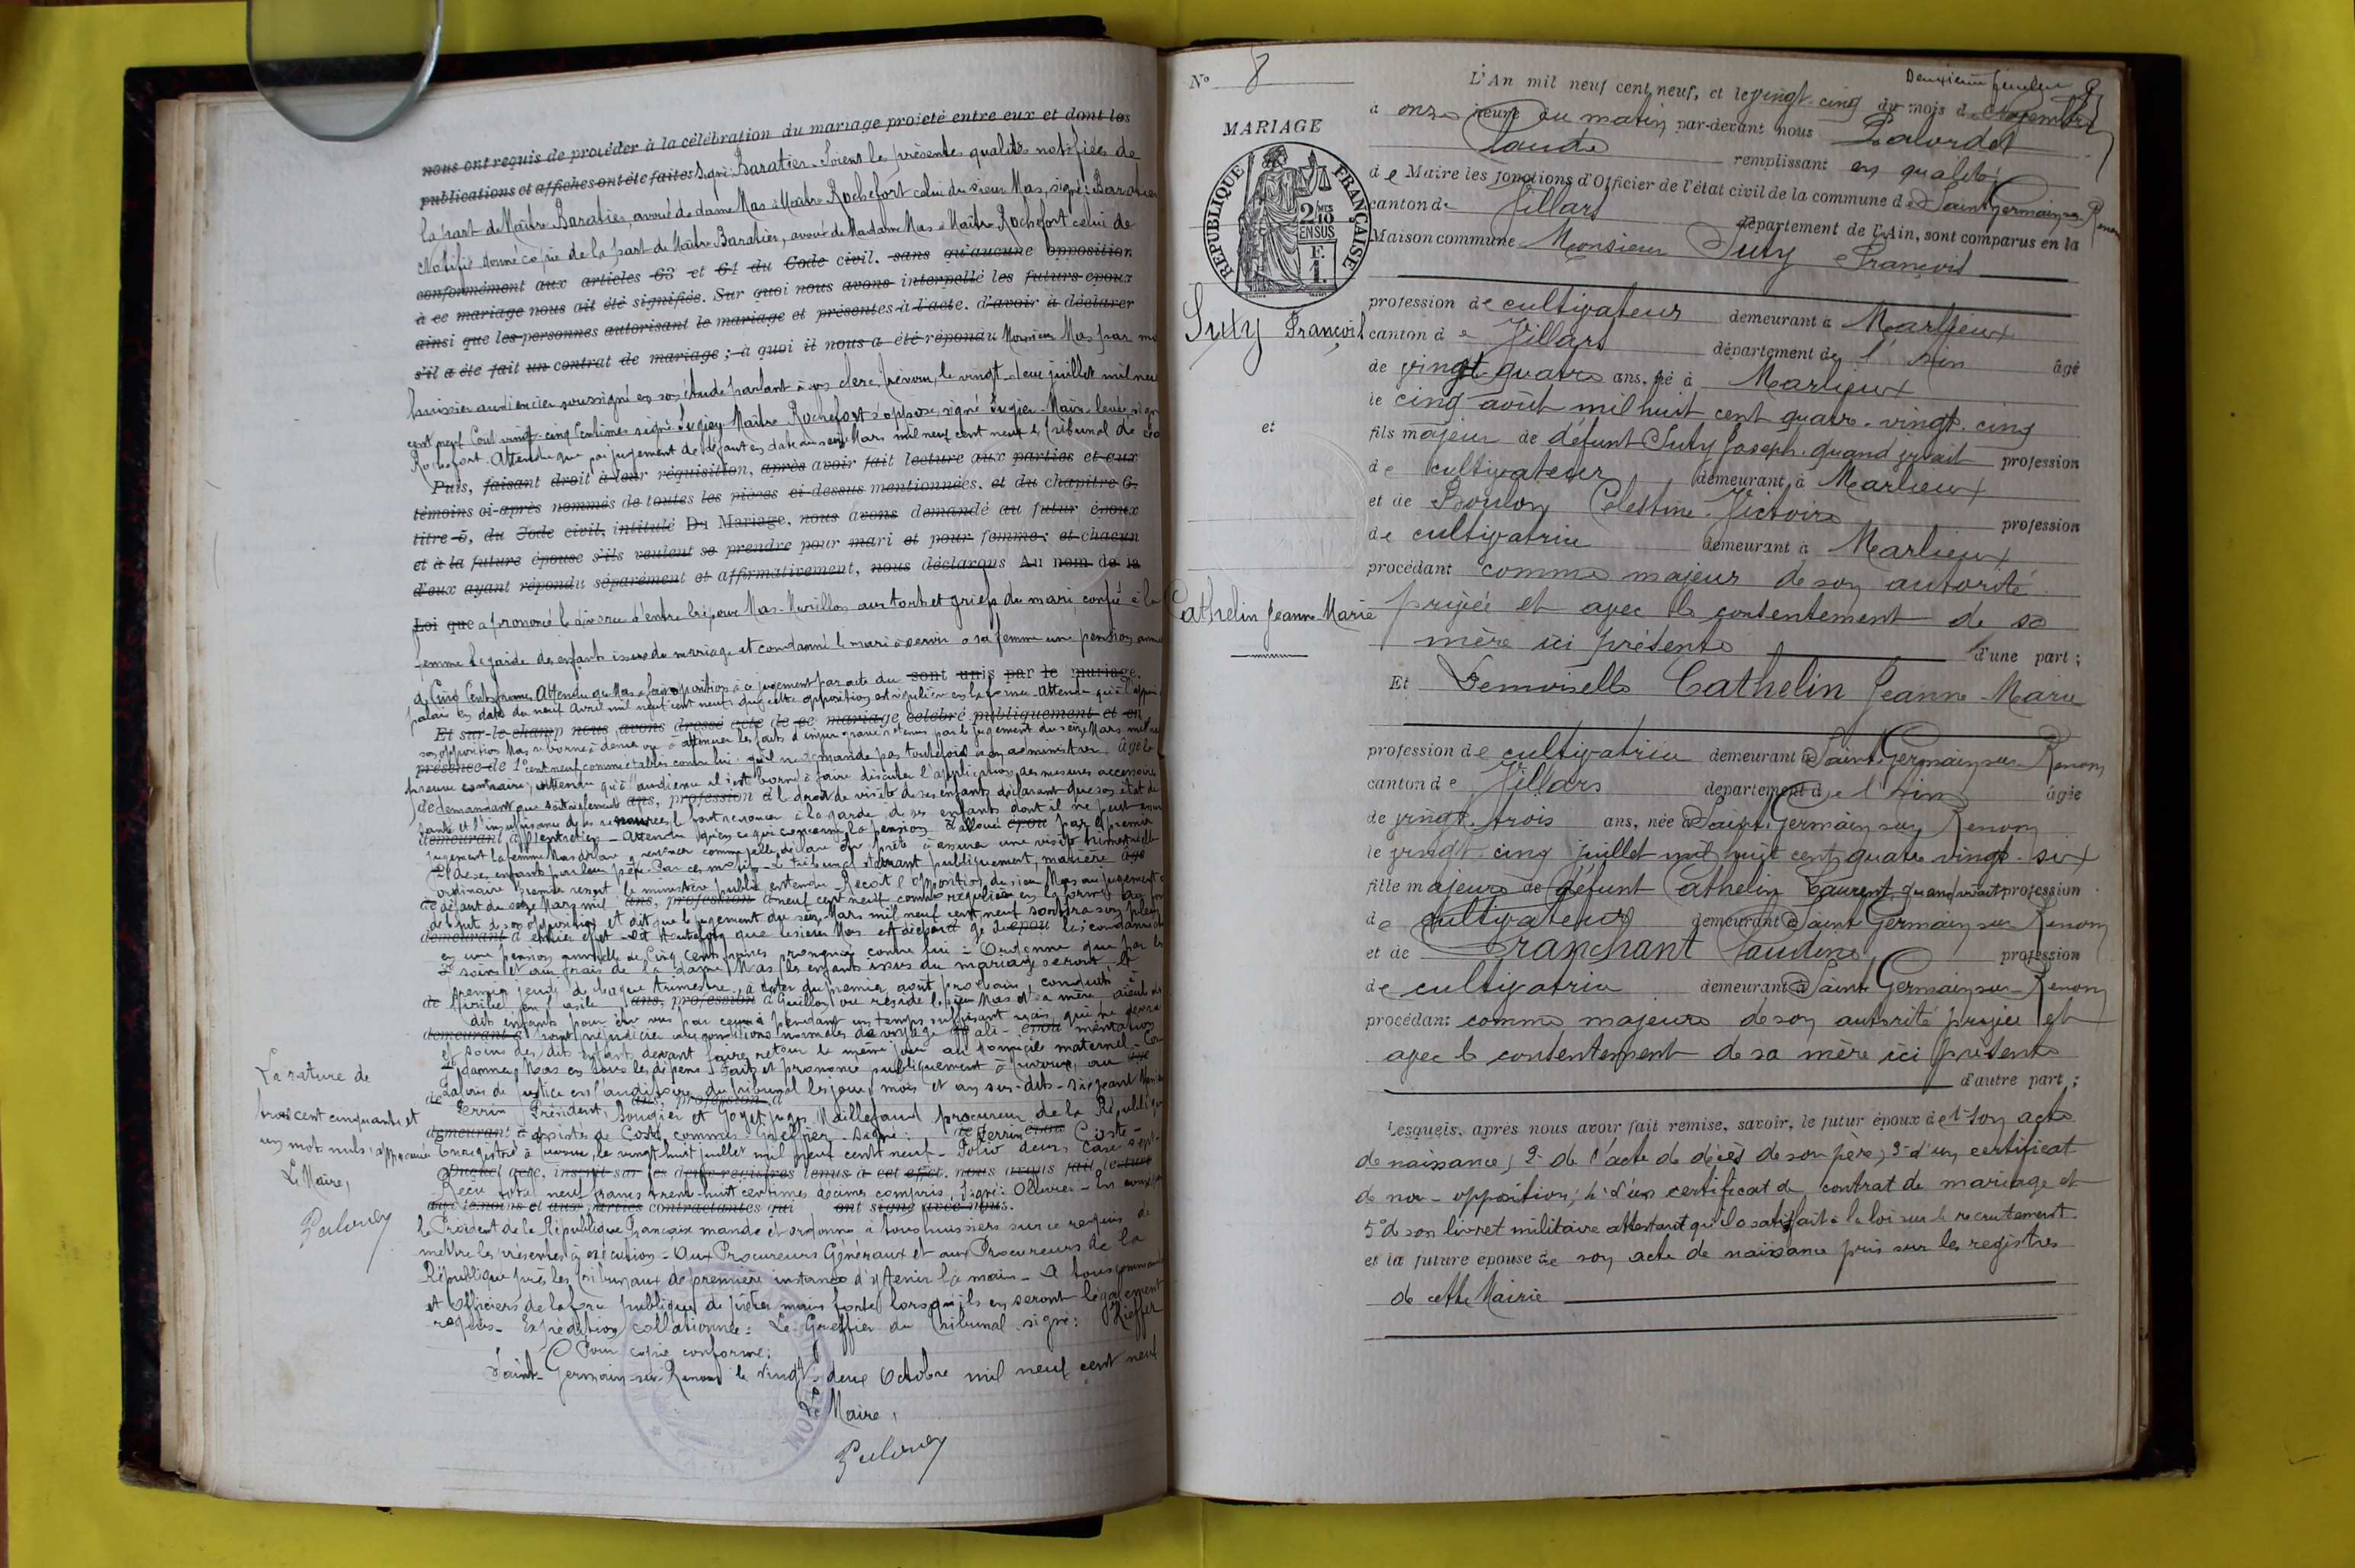 nous ont requis de procéder à la célébration du mariage projeté entre eux et dont les
publications et affiches ont été faites Signé: Baratier. Soient les présentes qualités notifiées de
la part de Maître Baratier, avoué de dame Mas à Maître Rochefort celui du sieur Mas, signé: Barratier
Notifié donné copie de la part de Maître Baratier, avoué de Madame Mas à Maître Rochefort celui de
conformément aux articles 63 et 64 du Code civil, sans qu'aucune opposition
à ce mariage nous ait été signifiée. Sur quoi nous avons interpellé les futurs epoux
ainsi que les personnes autorisant le mariage et présentes à l'acte, d'avoir à déclarer
s'il a été fait un contrat de mariage; à quoi il nous a été répondu Monsieur Mas par
huissier audiencier soussigné en son étude parlant à un clerc, le vingt deux juillet mil
cent neuf Cout vingt-cinq Centimes signé: Maître Rochefort s'oppose, signé
Rochefort. Attendu que par jugement de défaut en date du seize Mars mil neuf cent neuf le Tribunal de
Puis, faisant droit à leur réquisition, après avoir fait lecture aux parties et aux
témoins ci-après nommés de toutes les pièces ci-dessus mentionnées, et du chapitre 6,
titre 5, du Code civil, intitulé Du Mariage, nous avons demandé au futur époux
et à la future épouse s'ils veulent se prendre pour mari et pour femme; et chacun
d'eux ayant répondu séparément et affirmativement, nous déclarons Au nom de la
Loi que a prononcé le divorce d'entre les époux Mas-Murillon aux torts et griefs du mari, confié à la
femme la garde des enfants issus du mariage et condamné le mari à servir à sa femme une pension
de Cinq Cents francs Attendu que Mas a fait opposition à ce jugement par acte du sont unis par le mariage.
palais en date du neuf Avril mil neuf cent neuf; que cette opposition est régulière en la forme. Attendu qu'à
Et sur-le-champ nous avons dressé acte de ce mariage célébré publiquement et en
son opposition Mas se borne à denier ou à attenuer les faits d'injure grave retenus par le jugement du seize Mars mil
présence de 1° cent neuf comme établis contre lui qu'il ne demande pas toutefois à en administrer âgé
preuve contraire; attendu qu'à l'audience il s'est borné à faire discuter l'application des mesures accessoires
de demandant que ans, profession à le droit de visite de ses enfants déclarant que son état de
santé et l'insuffisance de ses ressources font renoncer à la garde de ses enfants dont il ne peut
demeurant à l'entretien - Attendu qu'en ce qui concerne la pension allouée époux par le premier
jugement la femme Mas déclare y renoncer comme elle déclare être prête à assurer une visite trimestrielle
2° de ses enfants par leur père. Par ces motifs - Le Tribunal statuant publiquement, matière âgé
ordinaire premier ressort le ministère public entendu - Reçoit l'opposition du sieur Mas au jugement
de défaut du seize Mars mil ans, profession à neuf cent neuf comme régulière en la forme
débouté de son opposition et dit que le jugement du seize Mars mil neuf cent neuf sortira son plein
demeurant à entier effet - Dit toutefois que le sieur Mas est déchargé de époux la condamnation
en une pension annuelle de Cinq Cents francs prononcé contre lui - Ordonne que par les
3° soins et aux frais de la dame Mas, les enfants issus du mariage seront, le
premier jeudi de chaque trimestre, à dater du premier août prochain, conduits
de ans, profession à Guillon, où réside le sieur Mas et sa mère
dits enfants pour être vus par ceux-ci pendant un temps suffisant mais qui ne devra
demeurant à
et soins des dits enfants devant faire retour le même jour au domicile maternel.
4° damne Mas en tous les dépens. Fait et prononcé publiquement à Trévoux, au âgé
Palais de Justice en l'auditoire du tribunal les jour, mois et an sus-dits - Siégeant
de Perrin Président, Bougier et juges Maillefaud procureur de la République
demeurant à assistés de Coste, commis-Greffier. Signé: Perrin Coste -
Enregistré à Trévoux, le vingt huit juillet mil neuf cent neuf - Folio deux Case sept.
Duquel acte, inscrit sur les deux registres tenus à cet effet, nous avons fait lecture
Reçu total neuf francs trente-huit centimes décimes compris, signé: Olivier -
aux témoins et aux parties contractantes qui ont signé avec nous.
le Président de la République Française mande et ordonne à tous huissiers sur ce requis de
mettre les présentes à exécution - Aux Procureurs Généraux et aux Procureurs de la
République près les tribunaux de première instance d'y tenir la main - A tous
et Officiers de la force publique de prêter main forte lorsqu'ils en seront légalement
requis - Expédition collationnée: Le Greffier du Tribunal signé: Kieffer
Pour copie conforme:
Saint-Germain-sur-Renom le vingt-deux Octobre mil neuf cent neuf
Le Maire,
La rature de
trois cent cinquante et
un mots nuls approuvée
Le Maire,
Deuxième feuillet
N° 8
MARIAGE
REPUBLIQUE FRANÇAISE
2/10 MES EN SUS
F. 1.
Suty François
et
Cathelin Jeanne Marie
L'An mil neuf cent neuf, et le vingt-cinq du mois de Novembre
à onze heure du matin par-devant nous Palordet
Claude remplissant en qualité
de Maire les fonctions d'Officier de l'état civil de la commune de Saint Germain sur Renom
canton de Villars département de l'Ain, sont comparus en la
Maison commune Monsieur Suty François
profession de cultivateur demeurant à Marlieux
canton de Villars département de l'Ain âgé
de vingt-quatre ans, né à Marlieux
le cinq août mil huit cent quatre-vingt-cinq
fils majeur de défunt Suty Joseph quand vivait profession
de cultivateur demeurant à Marlieux
et de Boulon Celestine-Victoire profession
de cultivatrice demeurant à Marlieux
procédant comme majeur de son autorité
privée et avec le consentement de sa
mère ici présente d'une part;
Et Demoiselle Cathelin Jeanne-Marie
profession de cultivatrice demeurant à Saint Germain sur Renom
canton de Villars département de l'Ain âgée
de vingt-trois ans, née à Saint Germain sur Renom
le vingt-cinq juillet mil huit cent quatre vingt-six
fille majeure de défunt Cathelin Laurent, quand vivait profession
de cultivateur demeurant à Saint Germain sur Renom
et de Franchant Claudine, profession
de cultivatrice demeurant à Saint Germain sur Renom
procédant comme majeure de son autorité privée et
avec le consentement de sa mère ici présente
d'autre part;
Lesquels, après nous avoir fait remise, savoir, le futur époux de 1° son acte
de naissance; 2° de l'acte de décès de son père; 3° d'un certificat
de non-opposition; 4° d'un certificat de contrat de mariage et
5° de son livret militaire attestant qu'il a satisfait à la loi sur le recrutement
et la future épouse de son acte de naissance pris sur les registres
de cette Mairie